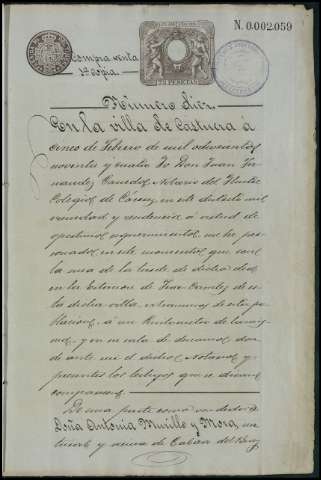 N. 0.002.059
Compra venta
1ª copia
Número diez
En la villa de Castuera á
cinco de Febrero de mil ochocientos
noventa y cuatro Yo Don Juan Fer
nandez Notario del Ilustre
Colegio de Cáceres, en este distrito mi
vecindad y residencia á virtud de
oportuno requerimiento, me he per
sonado en este momento que son
la una de la tarde de dicho dia
en la Estacion de
la dicha villa, extramuros de esta po
blacion, á un kilometro de la mis
ma, y en su sala de descanso, don
de ante mi el dicho Notario y
presentes los testigos que se dirán
comparecen
De una parte como vendedora
Doña Antonia Murillo y Mora,
y vecina de Cabeza del Buey